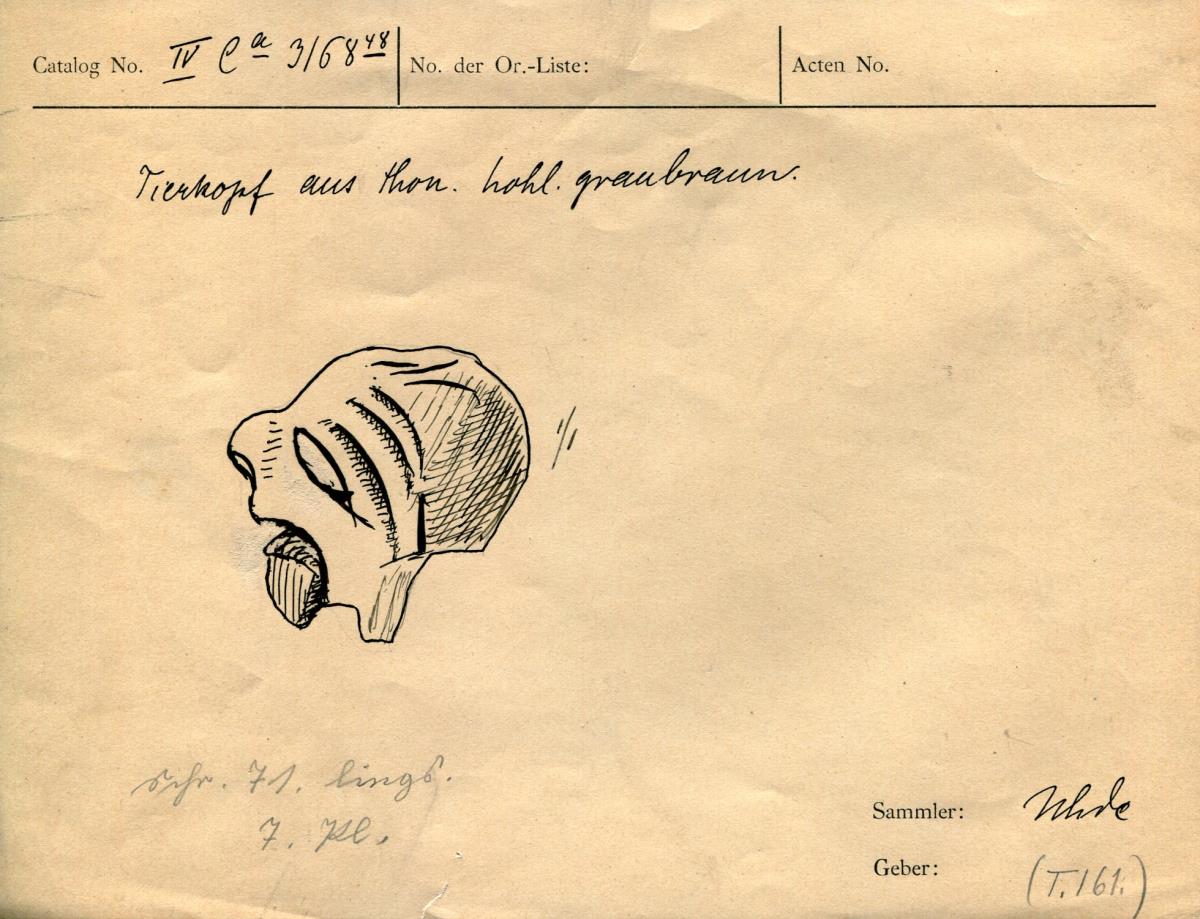 Catalog No. IV Ca 3168 48 No. der Or.-Liste: Acten No.
Tierkopf aus Thon. hohl. graubraun.
1/1
Schr. 71. lings.
7. Pl.
Sammler: Uhde
Geber: (T. 161.)